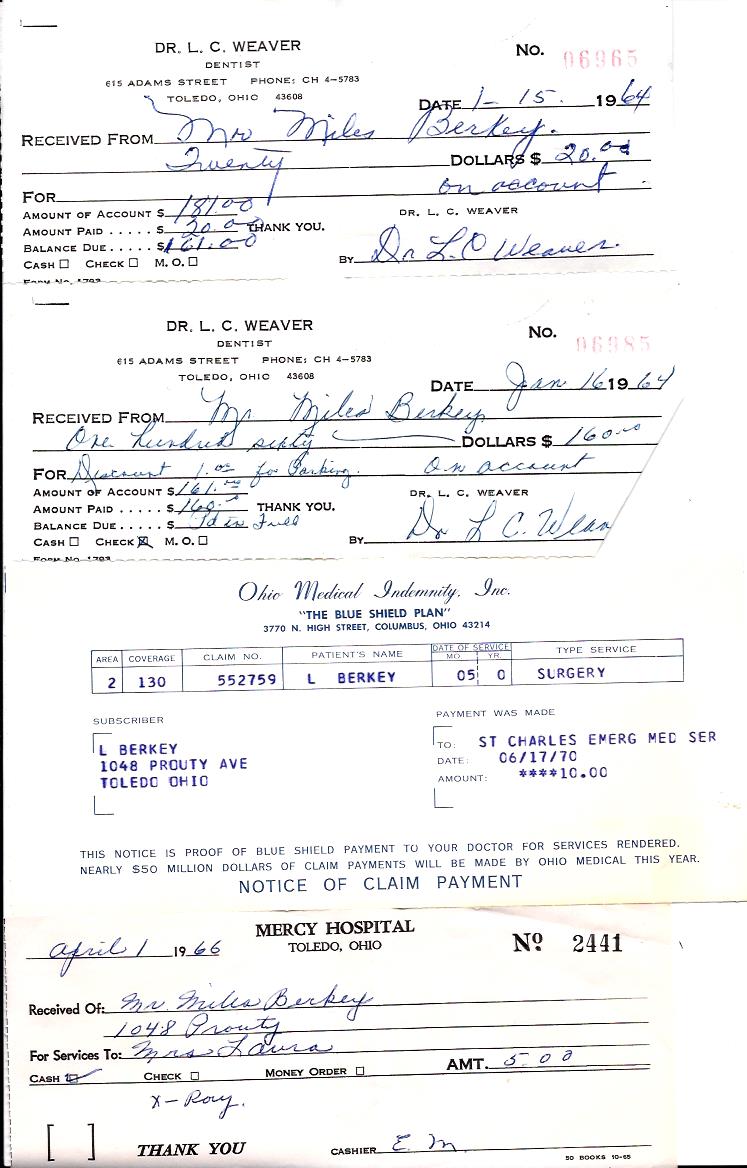 DR. L. C. WEAVER
DENTIST
615 ADAMS STREET PHONE: CH 4-5783
TOLEDO, OHIO 43608
No. 06965
DATE 1-15. 1964
RECEIVED FROM Mr Miles Berkey.
Twenty DOLLARS $ 20.00
FOR on account
AMOUNT OF ACCOUNT $ 181.00
AMOUNT PAID . . . . . $ 20.00 THANK YOU.
BALANCE DUE . . . . . $ 161.00
CASH ☐ CHECK ☐ M. O. ☐
DR. L. C. WEAVER
BY Dr L. C Weaver.
Form No. 1793
DR. L. C. WEAVER
DENTIST
615 ADAMS STREET PHONE: CH 4-5783
TOLEDO, OHIO 43608
No. 06985
DATE Jan 16 1964
RECEIVED FROM Mr Miles Berkey
One hundred sixty DOLLARS $ 160.00
FOR Discount 1.00 for Parking. on account
AMOUNT OF ACCOUNT $ 161.00
AMOUNT PAID . . . . . $ 160.00 THANK YOU.
BALANCE DUE . . . . . $ Pd in Full
CASH ☐ CHECK ☒ M. O. ☐
DR. L. C. WEAVER
BY Dr L C. Weav
Form No. 1793
Ohio Medical Indemnity, Inc.
"THE BLUE SHIELD PLAN"
3770 N. HIGH STREET, COLUMBUS, OHIO 43214
AREA COVERAGE CLAIM NO. PATIENT'S NAME DATE OF SERVICE MO. YR. TYPE SERVICE
2 130 552759 L BERKEY 05 0 SURGERY
SUBSCRIBER
L BERKEY
1048 PROUTY AVE
TOLEDO OHIO
PAYMENT WAS MADE
TO: ST CHARLES EMERG MED SER
DATE: 06/17/70
AMOUNT: ****10.00
THIS NOTICE IS PROOF OF BLUE SHIELD PAYMENT TO YOUR DOCTOR FOR SERVICES RENDERED.
NEARLY $50 MILLION DOLLARS OF CLAIM PAYMENTS WILL BE MADE BY OHIO MEDICAL THIS YEAR.
NOTICE OF CLAIM PAYMENT
MERCY HOSPITAL
TOLEDO, OHIO
April 1 1966
No 2441
Received Of: Mr. Miles Berkey
1048 Prouty
For Services To: Mrs Laura
AMT. 5.00
CASH ☑ CHECK ☐ MONEY ORDER ☐
X-Ray.
[ ] THANK YOU CASHIER E. M.
50 BOOKS 10-65